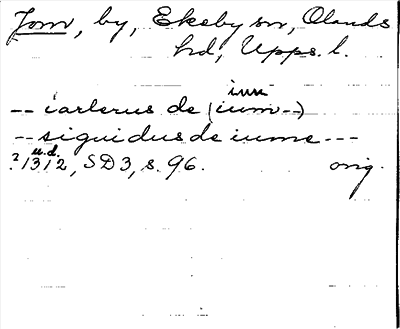 Jom, by, Ekeby sn, Olands
hd, Upps. l.
ium
-- iarlerus de (ium--)
-- siguidus de iume ---
u.d.
? 1312, SD3, s. 96. orig.